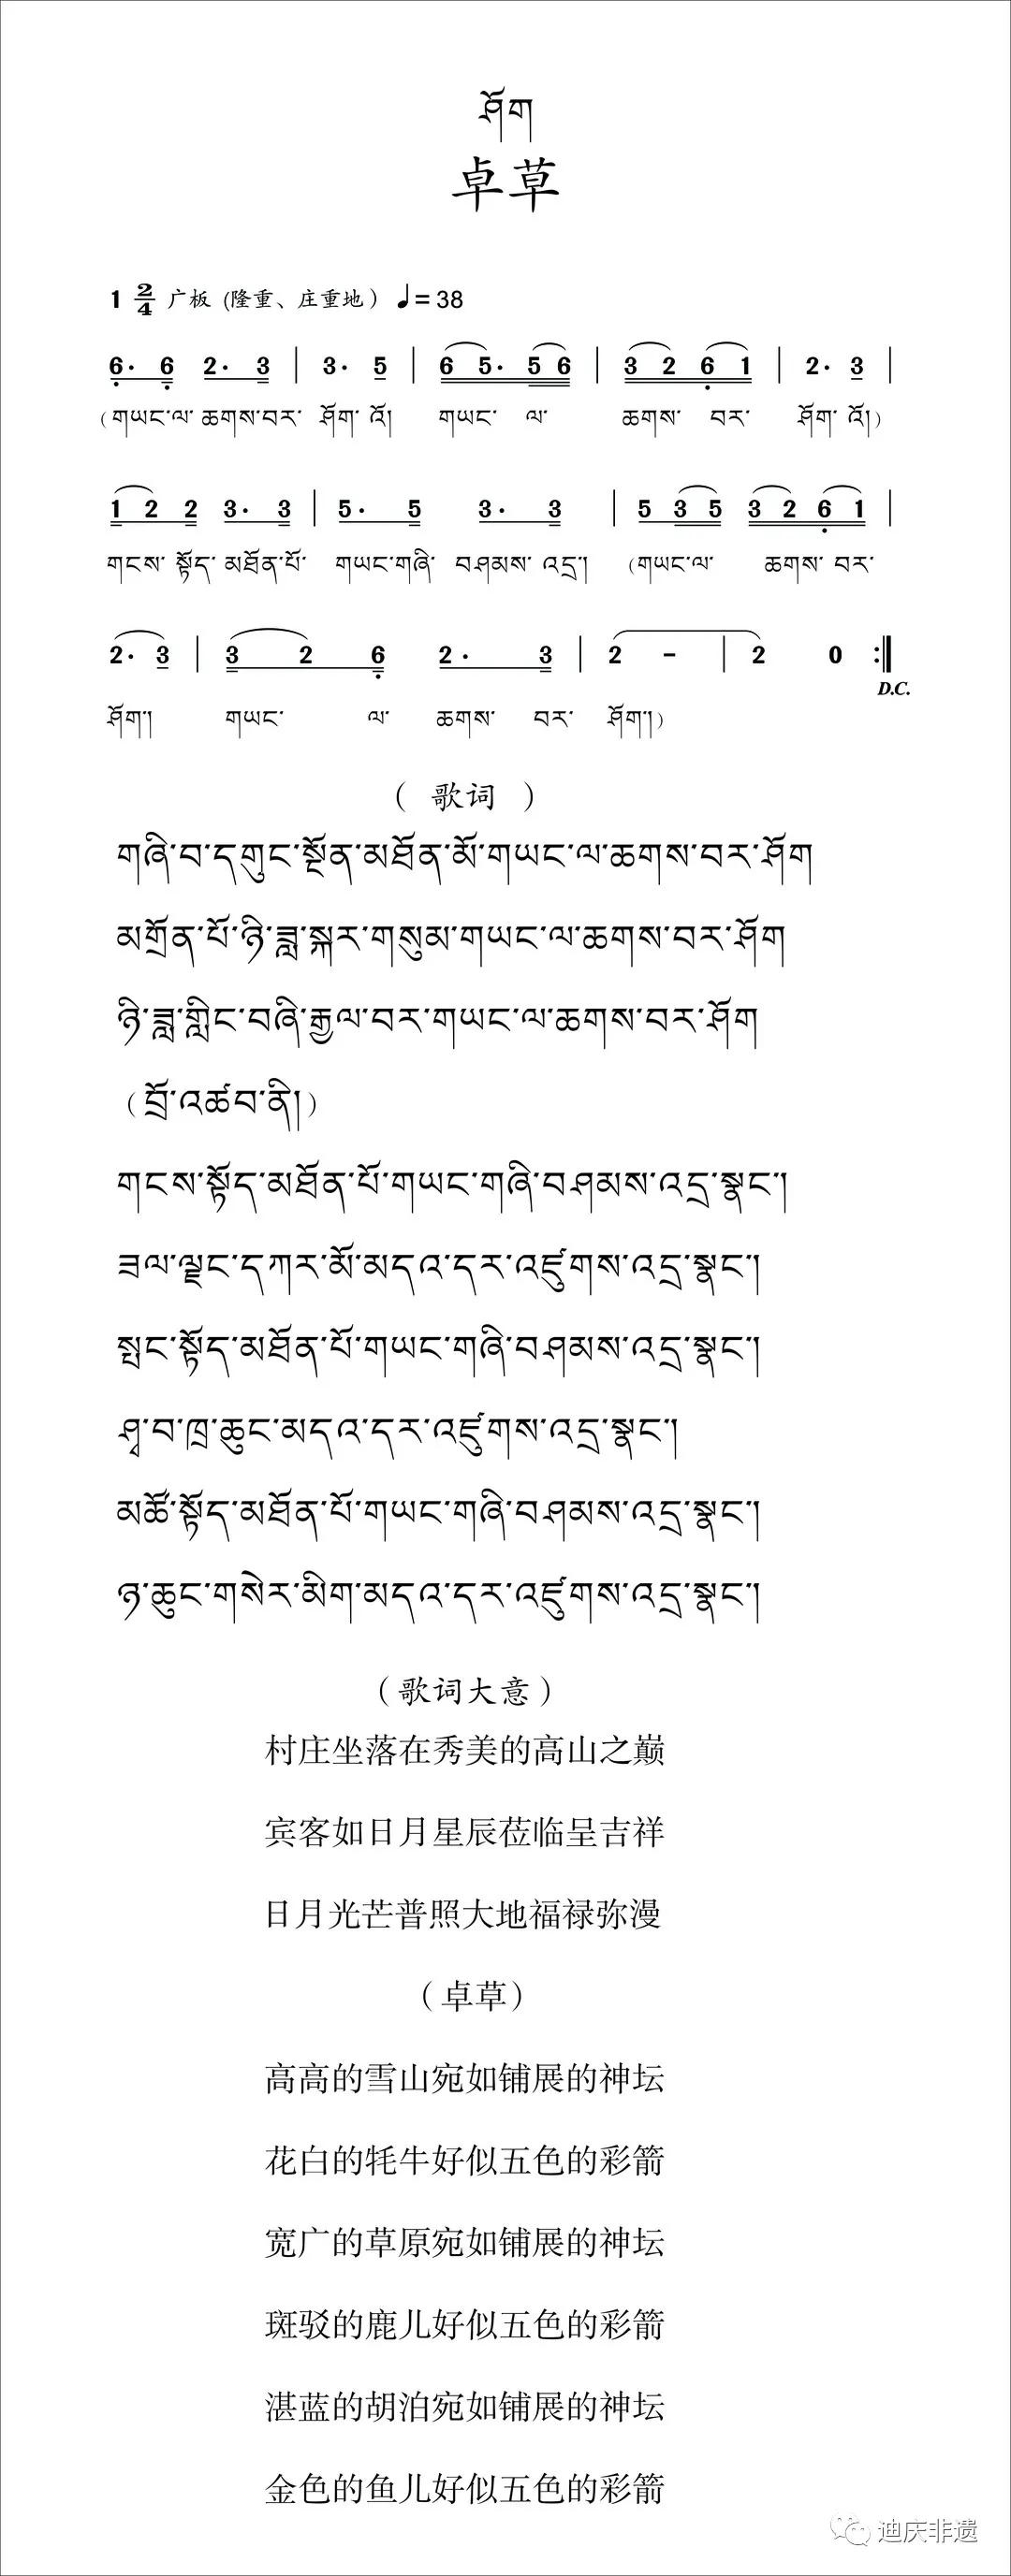 ཤོག
卓草
1 2/4 广板 (隆重、庄重地) ♩= 38
6̣· 6̣ 2· 3 | 3· 5 | 6 5· 5 6 | 3 2 6̣ 1 | 2· 3 |
(གཡང་ལ་ ཆགས་བར་ ཤོག་ འོ། གཡང་ ལ་ ཆགས་ བར་ ཤོག་ འོ།)
1 2 2 3· 3 | 5· 5 3· 3 | 5 3 5 3 2 6̣ 1 |
གངས་ སྟོད་ མཐོན་པོ་ གཡང་གཞི་ བཤམས་ འདྲ། (གཡང་ལ་ ཆགས་ བར་
2· 3 | 3 2 6̣ 2· 3 | 2 - | 2 0 :‖
D.C.
ཤོག། གཡང་ ལ་ ཆགས་ བར་ ཤོག།)
( 歌词 )
གཞི་བ་དགུང་སྔོན་མཐོན་མོ་གཡང་ལ་ཆགས་བར་ཤོག
མགྲོན་པོ་ཉི་ཟླ་སྐར་གསུམ་གཡང་ལ་ཆགས་བར་ཤོག
ཉི་ཟླ་གླིང་བཞི་རྒྱལ་བར་གཡང་ལ་ཆགས་བར་ཤོག
(བྲོ་འཚབ་ནི།)
གངས་སྟོད་མཐོན་པོ་གཡང་གཞི་བཤམས་འདྲ་སྣང་།
ཟལ་ལྗང་དཀར་མོ་མདའ་དར་འཛུགས་འདྲ་སྣང་།
སྤང་སྟོད་མཐོན་པོ་གཡང་གཞི་བཤམས་འདྲ་སྣང་།
ཤྭ་བ་ཁྲ་ཆུང་མདའ་དར་འཛུགས་འདྲ་སྣང་།
མཚོ་སྟོད་མཐོན་པོ་གཡང་གཞི་བཤམས་འདྲ་སྣང་།
ཉ་ཆུང་གསེར་མིག་མདའ་དར་འཛུགས་འདྲ་སྣང་།
(歌词大意)
村庄坐落在秀美的高山之巅
宾客如日月星辰莅临呈吉祥
日月光芒普照大地福禄弥漫
(卓草)
高高的雪山宛如铺展的神坛
花白的牦牛好似五色的彩箭
宽广的草原宛如铺展的神坛
斑驳的鹿儿好似五色的彩箭
湛蓝的胡泊宛如铺展的神坛
金色的鱼儿好似五色的彩箭
迪庆非遗